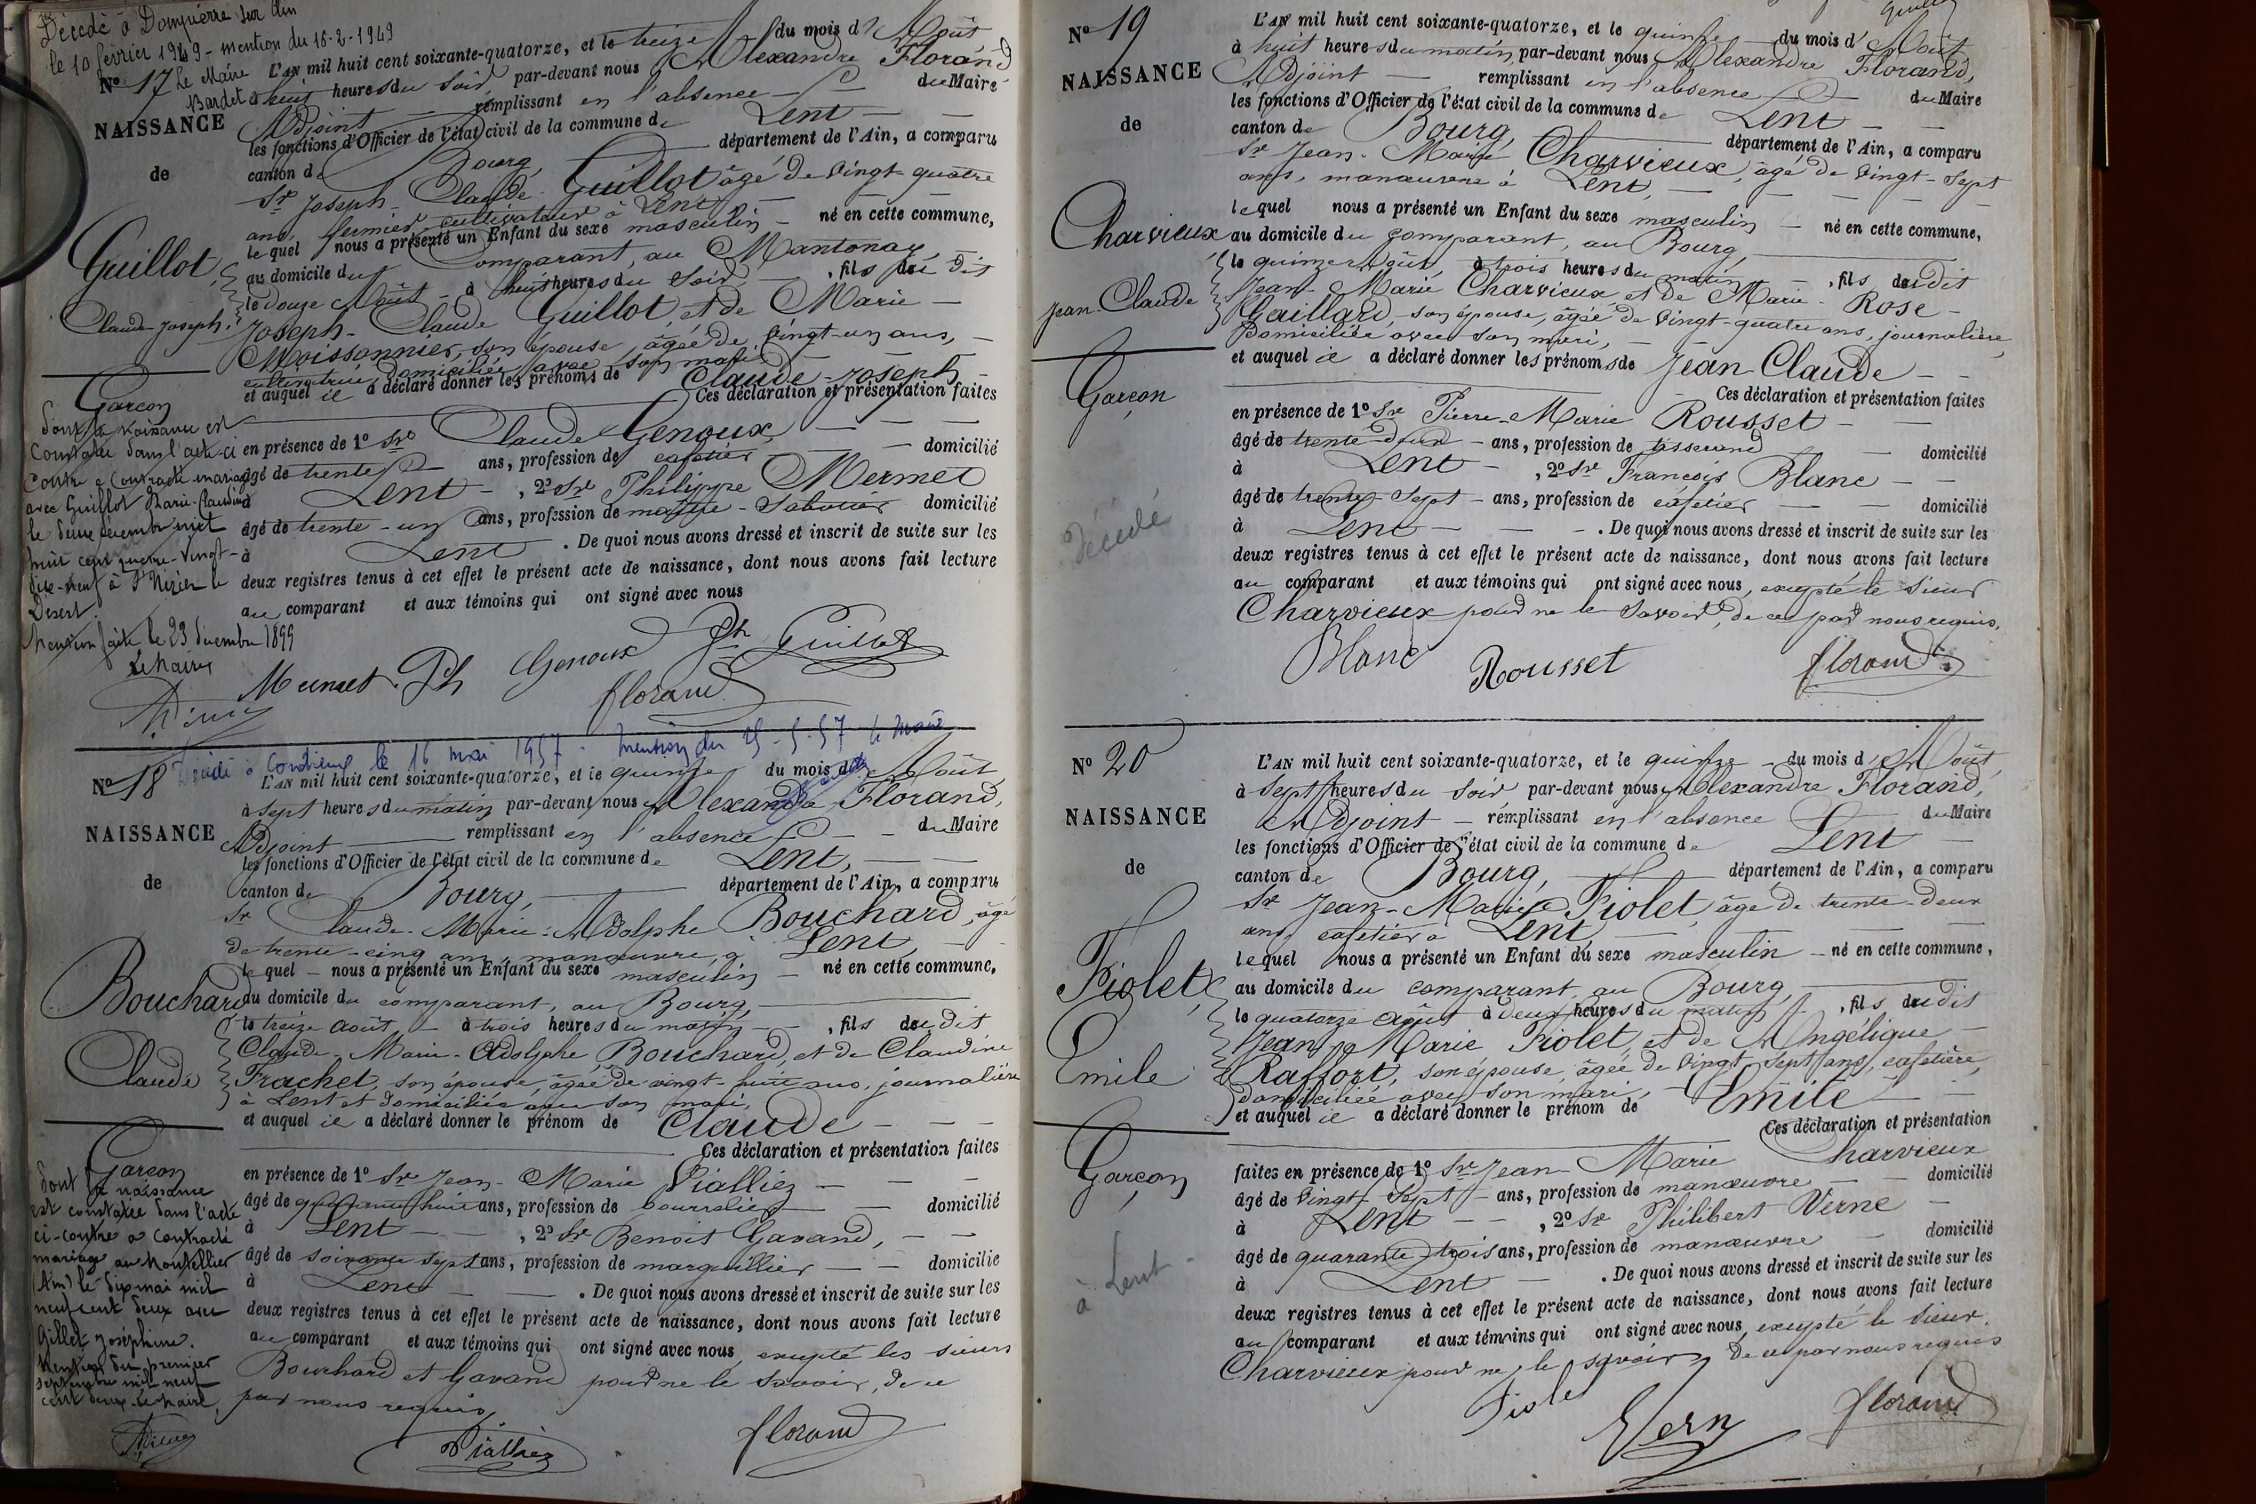 Décédé à Dompierre sur Ain
le 10 février 1949 - mention du 18-2-1949
Le Maire
Bardet
Nº 17
NAISSANCE
de
Guillot,
Claude-Joseph.
Garçon
dont la naissance est
constatée dans l'acte ci
contre a contracté mariage
avec Guillot Marie-Claudine
le seize décembre mil
huit cent quatre-vingt-
dix-neuf à St Nizier le
Désert.
Mention faite le 23 décembre 1899
Le Maire
L'AN mil huit cent soixante-quatorze, et le treize du mois d'Août
à huit heures du soir, par-devant nous Alexandre Florand
Adjoint remplissant en l'absence du Maire
les fonctions d'Officier de l'état civil de la commune de Lent
canton de Bourg, département de l'Ain, a comparu
Sr Joseph-Claude Guillot âgé de vingt-quatre
ans, fermier cultivateur à Lent,
lequel nous a présenté un Enfant du sexe masculin né en cette commune,
au domicile du Comparant, au Mantonay
le douze Août à huit heures du soir, fils du dit
Joseph-Claude Guillot et de Marie
Moissonnier, son épouse, âgée de vingt-un ans,
cultivatrice domiciliée avec son mari
et auquel il a déclaré donner les prénoms de Claude-Joseph
Ces déclaration et présentation faites
en présence de 1º Sre Claude Genoux,
âgé de trente ans, profession de cafetier domicilié
à Lent, 2º Sre Philippe Mermet
âgé de trente-un ans, profession de maître-sabotier domicilié
à Lent. De quoi nous avons dressé et inscrit de suite sur les
deux registres tenus à cet effet le présent acte de naissance, dont nous avons fait lecture
au comparant et aux témoins qui ont signé avec nous
Mermet Ph Genoux Guillot
florand
Décédé à Condrieux le 16 mai 1957 - mention du 25-5-57 le maire
Nº 18
NAISSANCE
de
Bouchard
Claude
Garçon
dont la naissance
est constatée dans l'acte
ci-contre a contracté
mariage au Montellier
(Ain) le dix mai mil
neuf cent deux avec
Gillet Joséphine.
Mention du premier
septembre mil neuf
cent deux. Le Maire,
L'AN mil huit cent soixante-quatorze, et le quinze du mois d'Août,
à sept heures du matin, par-devant nous Alexandre Florand,
Adjoint remplissant en l'absence du Maire
les fonctions d'Officier de l'état civil de la commune de Lent,
canton de Bourg, département de l'Ain, a comparu
Sr Claude-Marie-Adolphe Bouchard, âgé
de trente-cinq ans, manœuvre, à Lent,
lequel nous a présenté un Enfant du sexe masculin né en cette commune,
au domicile du comparant, au Bourg,
le treize Août, à trois heures du matin, fils du dit
Claude-Marie-Adolphe Bouchard, et de Claudine
Frachet, son épouse, âgée de vingt-huit ans, journalière
à Lent et domiciliée avec son mari,
et auquel il a déclaré donner le prénom de Claude
Ces déclaration et présentation faites
en présence de 1º Sre Jean-Marie Vialliez
âgé de quarante huit ans, profession de bourrelier domicilié
à Lent, 2º Sre Benoit Gavand,
âgé de soixante sept ans, profession de marguillier domicilié
à Lent. De quoi nous avons dressé et inscrit de suite sur les
deux registres tenus à cet effet le présent acte de naissance, dont nous avons fait lecture
au comparant et aux témoins qui ont signé avec nous excepté les sieurs
Bouchard et Gavand pour ne le savoir, de ce
par nous requis,
Vialliez florand
Nº 19
NAISSANCE
de
Charvieux
Jean-Claude
Garçon
Décédé
L'AN mil huit cent soixante-quatorze, et le quinze du mois d'Août
à huit heures du matin, par-devant nous Alexandre Florand,
Adjoint remplissant en l'absence du Maire
les fonctions d'Officier de l'état civil de la commune de Lent
canton de Bourg, département de l'Ain, a comparu
Sr Jean-Marie Charvieux, âgé de vingt-sept
ans, manœuvre à Lent,
lequel nous a présenté un Enfant du sexe masculin né en cette commune,
au domicile du comparant, au Bourg,
le quinze Août, à trois heures du matin, fils du dit
Jean-Marie Charvieux et de Marie-Rose
Gaillard, son épouse, âgée de vingt-quatre ans, journalière,
Domiciliée avec son mari,
et auquel il a déclaré donner les prénoms de Jean-Claude
Ces déclaration et présentation faites
en présence de 1º Sre Pierre-Marie Rousset
âgé de trente-deux ans, profession de tisserand domicilié
à Lent, 2º Sre François Blanc
âgé de trente-sept ans, profession de cafetier domicilié
à Lent. De quoi nous avons dressé et inscrit de suite sur les
deux registres tenus à cet effet le présent acte de naissance, dont nous avons fait lecture
au comparant et aux témoins qui ont signé avec nous, excepté le sieur
Charvieux pour ne le savoir, de ce par nous requis.
Blanc Rousset florand
Nº 20
NAISSANCE
de
Fiolet,
Emile
Garçon
à Lent
L'AN mil huit cent soixante-quatorze, et le quinze du mois d'Août,
à sept heures du soir par-devant nous Alexandre Florand,
Adjoint remplissant en l'absence du Maire
les fonctions d'Officier de l'état civil de la commune de Lent
canton de Bourg, département de l'Ain, a comparu
Sr Jean-Marie Fiolet, âgé de trente-deux
ans, cafetier à Lent
lequel nous a présenté un Enfant du sexe masculin né en cette commune,
au domicile du comparant, au Bourg,
le quatorze août à deux heures du matin, fils du dit
Jean-Marie Fiolet, et de Angélique
Raffort, son épouse, âgée de vingt-sept ans, cafetière,
domiciliée avec son mari,
et auquel il a déclaré donner le prénom de Emile
Ces déclaration et présentation
faites en présence de 1º Sre Jean-Marie Charvieux
âgé de vingt-sept ans, profession de manœuvre domicilié
à Lent, 2º Sr Philibert Verne
âgé de quarante-trois ans, profession de manœuvre domicilié
à Lent. De quoi nous avons dressé et inscrit de suite sur les
deux registres tenus à cet effet le présent acte de naissance, dont nous avons fait lecture
au comparant et aux témoins qui ont signé avec nous, excepté le sieur
Charvieux pour ne le savoir, de ce par nous requis
Fiolet Vern florand